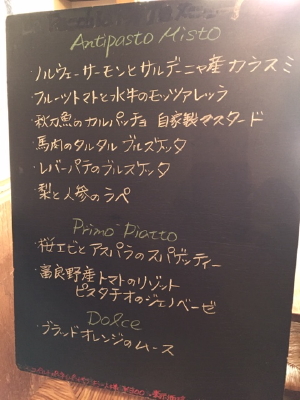 Antipasto Misto
・ノルウェーサーモンとサルデーニャ産カラスミ
・フルーツトマトと水牛のモッツァレッラ
・秋刀魚のカルパッチョ 自家製マスタード
・馬肉のタルタル ブルスケッタ
・レバーパテのブルスケッタ
・梨と人参のラペ
Primo Piatto
・桜エビとアスパラのスパゲッティー
・富良野産トマトのリゾット
ピスタチオのジェノベーゼ
Dolce
・ブラッドオレンジのムース